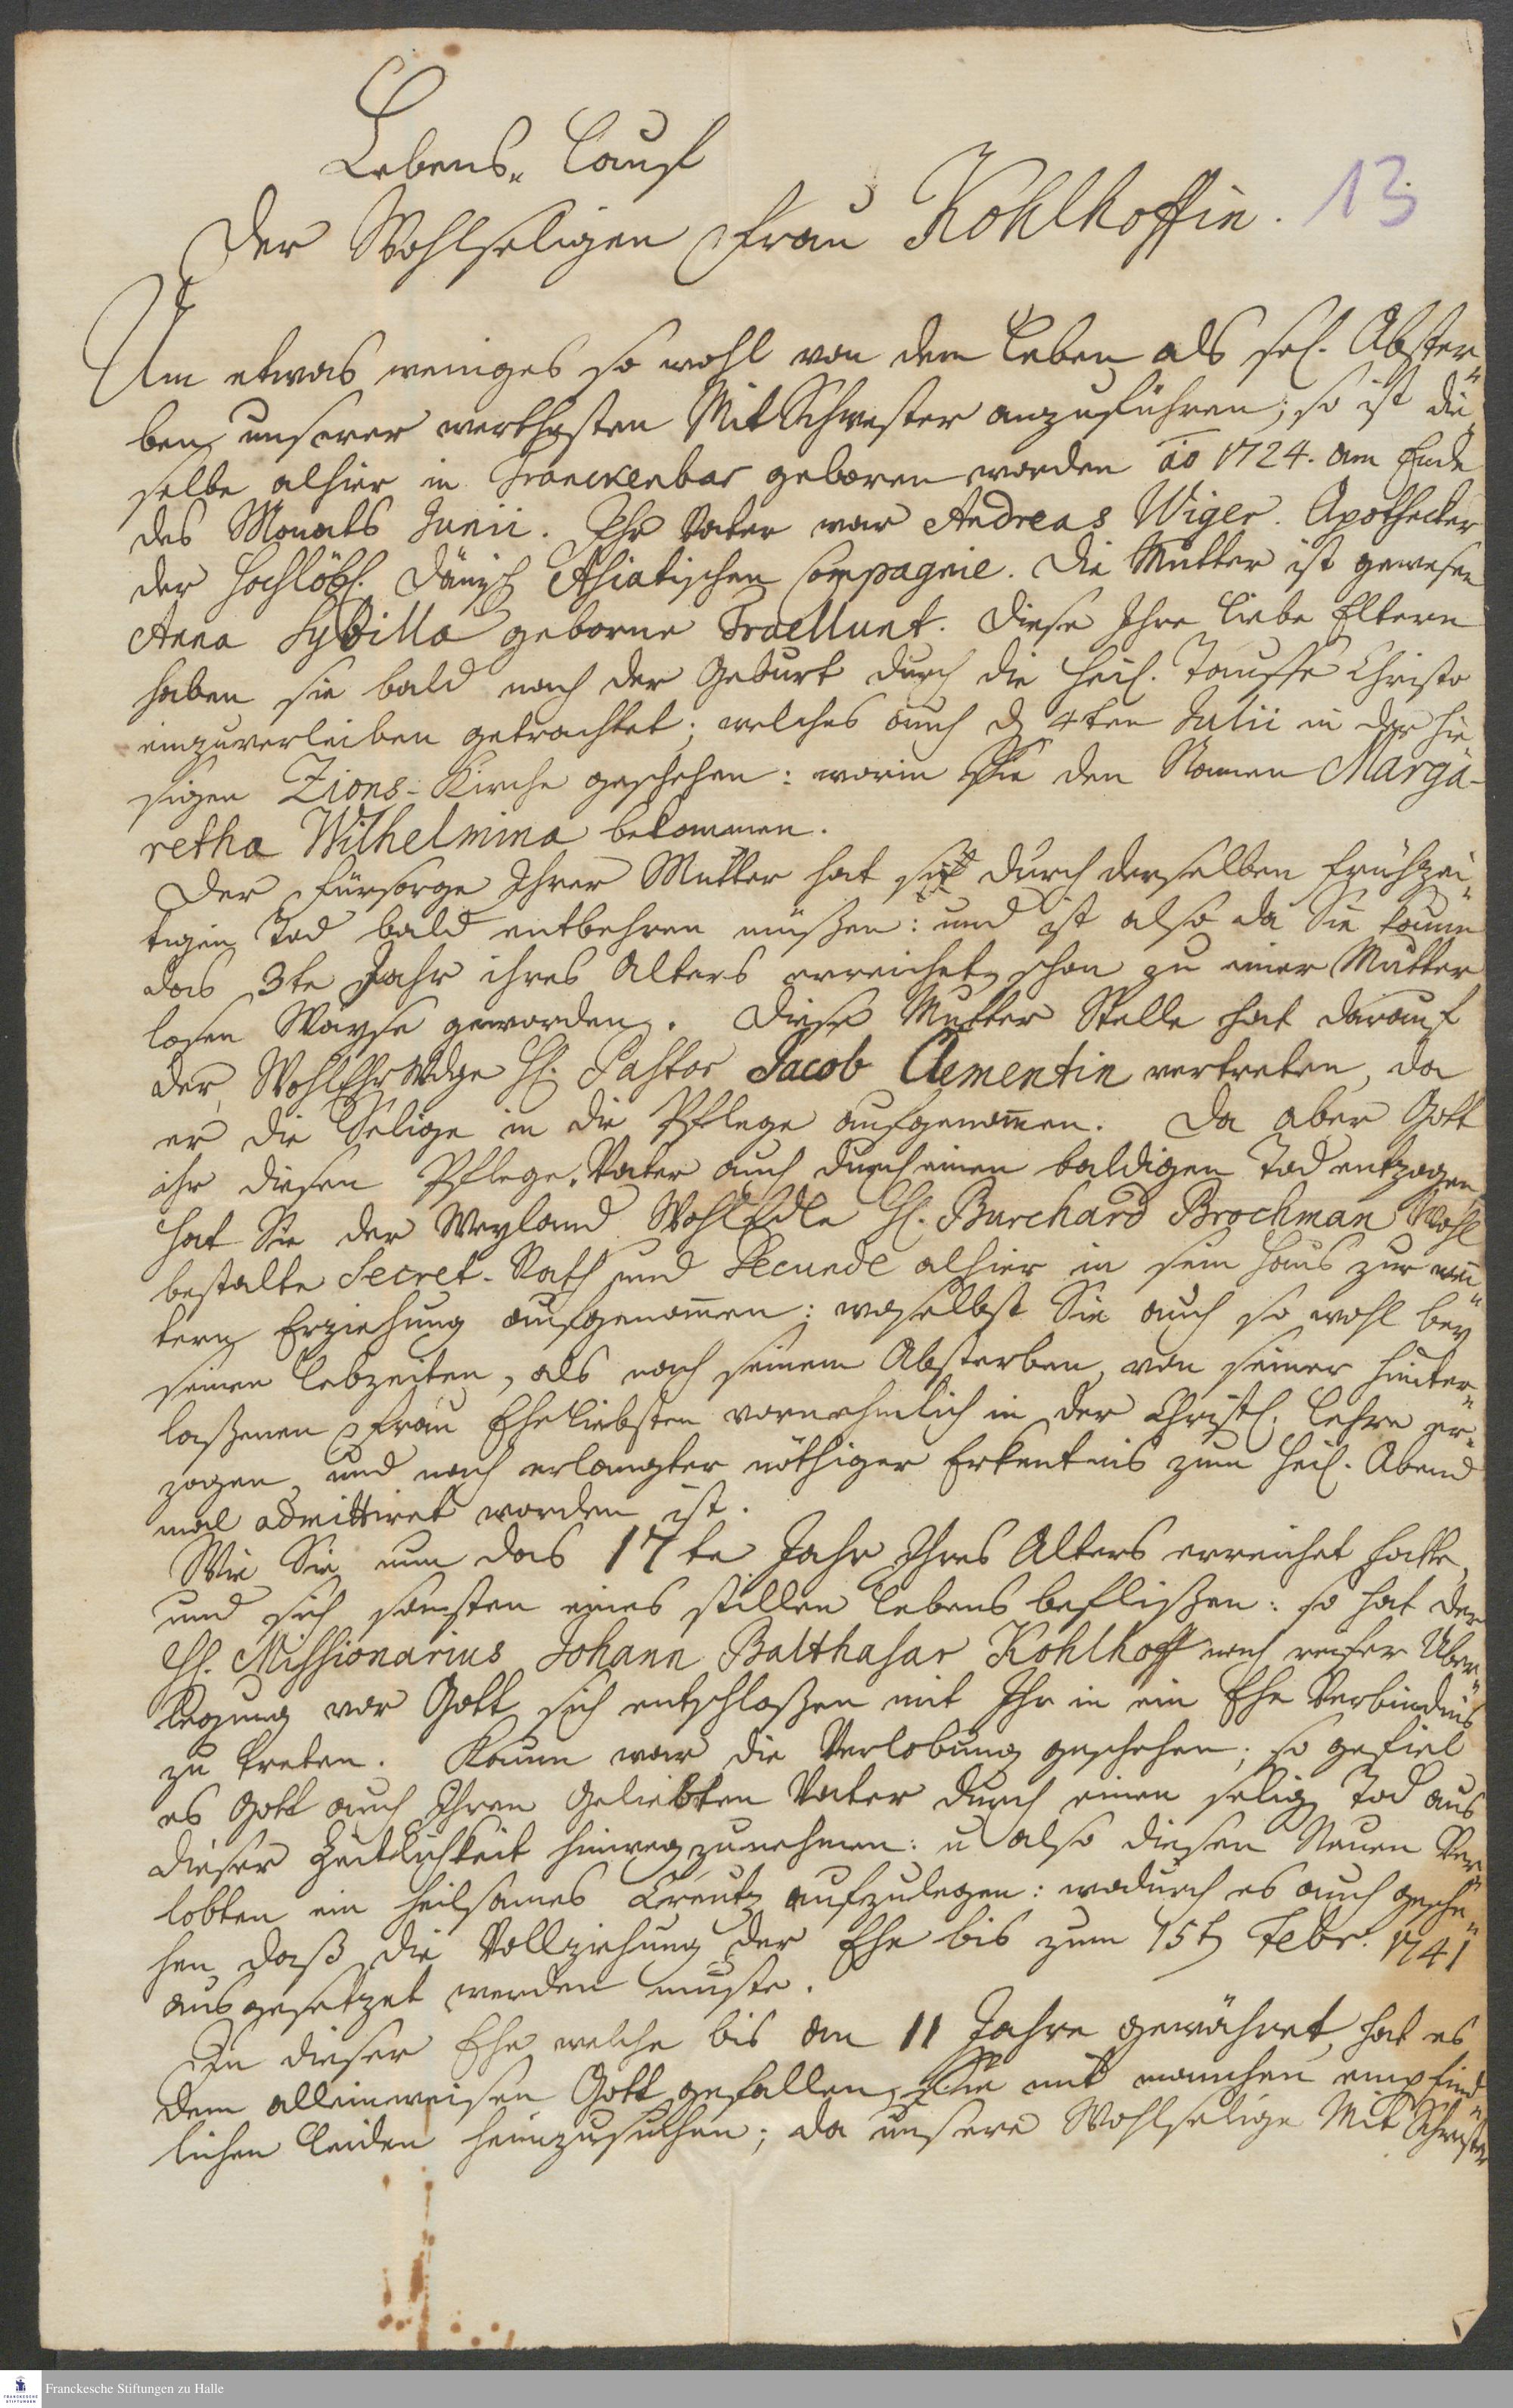 Lebens-Lauf
Der Wohlseligen Frau Kohlhoffin. 13
Um etwas weniges so wohl von dem Leben als sel. Abster„
ben unserer werthesten MitSchwester anzuführen; so ist die„
selbe alhier in Tranckenbar geboren worden ao 1724. am Ende
des Monats Junii. Ihr Vater war Andreas Wiger. Apothecker
der Hochlöbl. Dänsch Asiatischen Compagnie. Die Mutter ist gewesen
Anna Sybilla geborne Traellunt. Diese Ihre liebe Eltern
haben sie bald nach der Geburt durch die Heil. Tauffe Christo
einzuverleiben getrachtet; welches auch d 4ten Julii in der hie
sigen Zions-Kirche geschehen: worin Sie den Namen Marga-
retha Wilhelmina bekommen.
Der Fürsorge Ihrer Mutter hat sie durch derselben frühzei„
tigen Tod bald entbehren müßen: und ist also da Sie kaum
das 3te Jahr ihres Alters erreichet, schon zu einer Mutter
losen Wayse geworden. Diese Mutter Stelle hat darauf
der WohlEhrWdge H. Pastor Jacob Clementin vertreten, da
er die Selige in die Pflege aufgenom̅en. Da aber Gott
ihr diesen Pflege-Vater auch durch einen baldigen Tod entzogen
hat Sie der Weyland WohlEdle H. Burchard Brochman Wohl
bestalte Secret-Rath und Secunde alhier in sein Haus zur
tern Erziehung aufgenom̅en: woselbst Sie auch so wohl bey
seinen Lebzeiten, als nach seinem Absterben, von seiner hinter„
laßenen Frau EheLiebsten vornehmlich in der Christl. Lehre er„
zogen, und nach erlangter nöthiger Erkentnis zum Heil. Abend
mal admittiret worden ist.
Wie Sie nun das 17te Jahr Ihres Alters erreichet hatte,
und sich sonsten eines stillen Lebens beflißen: so hat der
H. Missionarius Johann Balthasar Kohlhoff nach reifer Über„
legung vor Gott sich entschloßen mit Ihr in ein Ehe Verbindnis
zu treten. Kaum war die Verlobung geschehen; so gefiel
es Gott auch Ihren Geliebten Vater durch einen selig Tod aus
dieser Zeitlichkeit hinwegzunehmen: u also diesen Neuen Ver„
lobten ein heilsames Creutz aufzulegen: wodurch es auch gesche„
hen, daß die Vollziehung der Ehe bis zum 15t Febr. 1741
ausgesetzet werden muste.
In dieser Ehe welche bis an 11 Jahre gewähret, hat es
dem alleinweisen Gott gefallen, Sie mit manchen empfind„
lichen Leiden heimzusuchen; da unsere Wohlselige Mit Schwester
Franckesche Stiftungen zu Halle